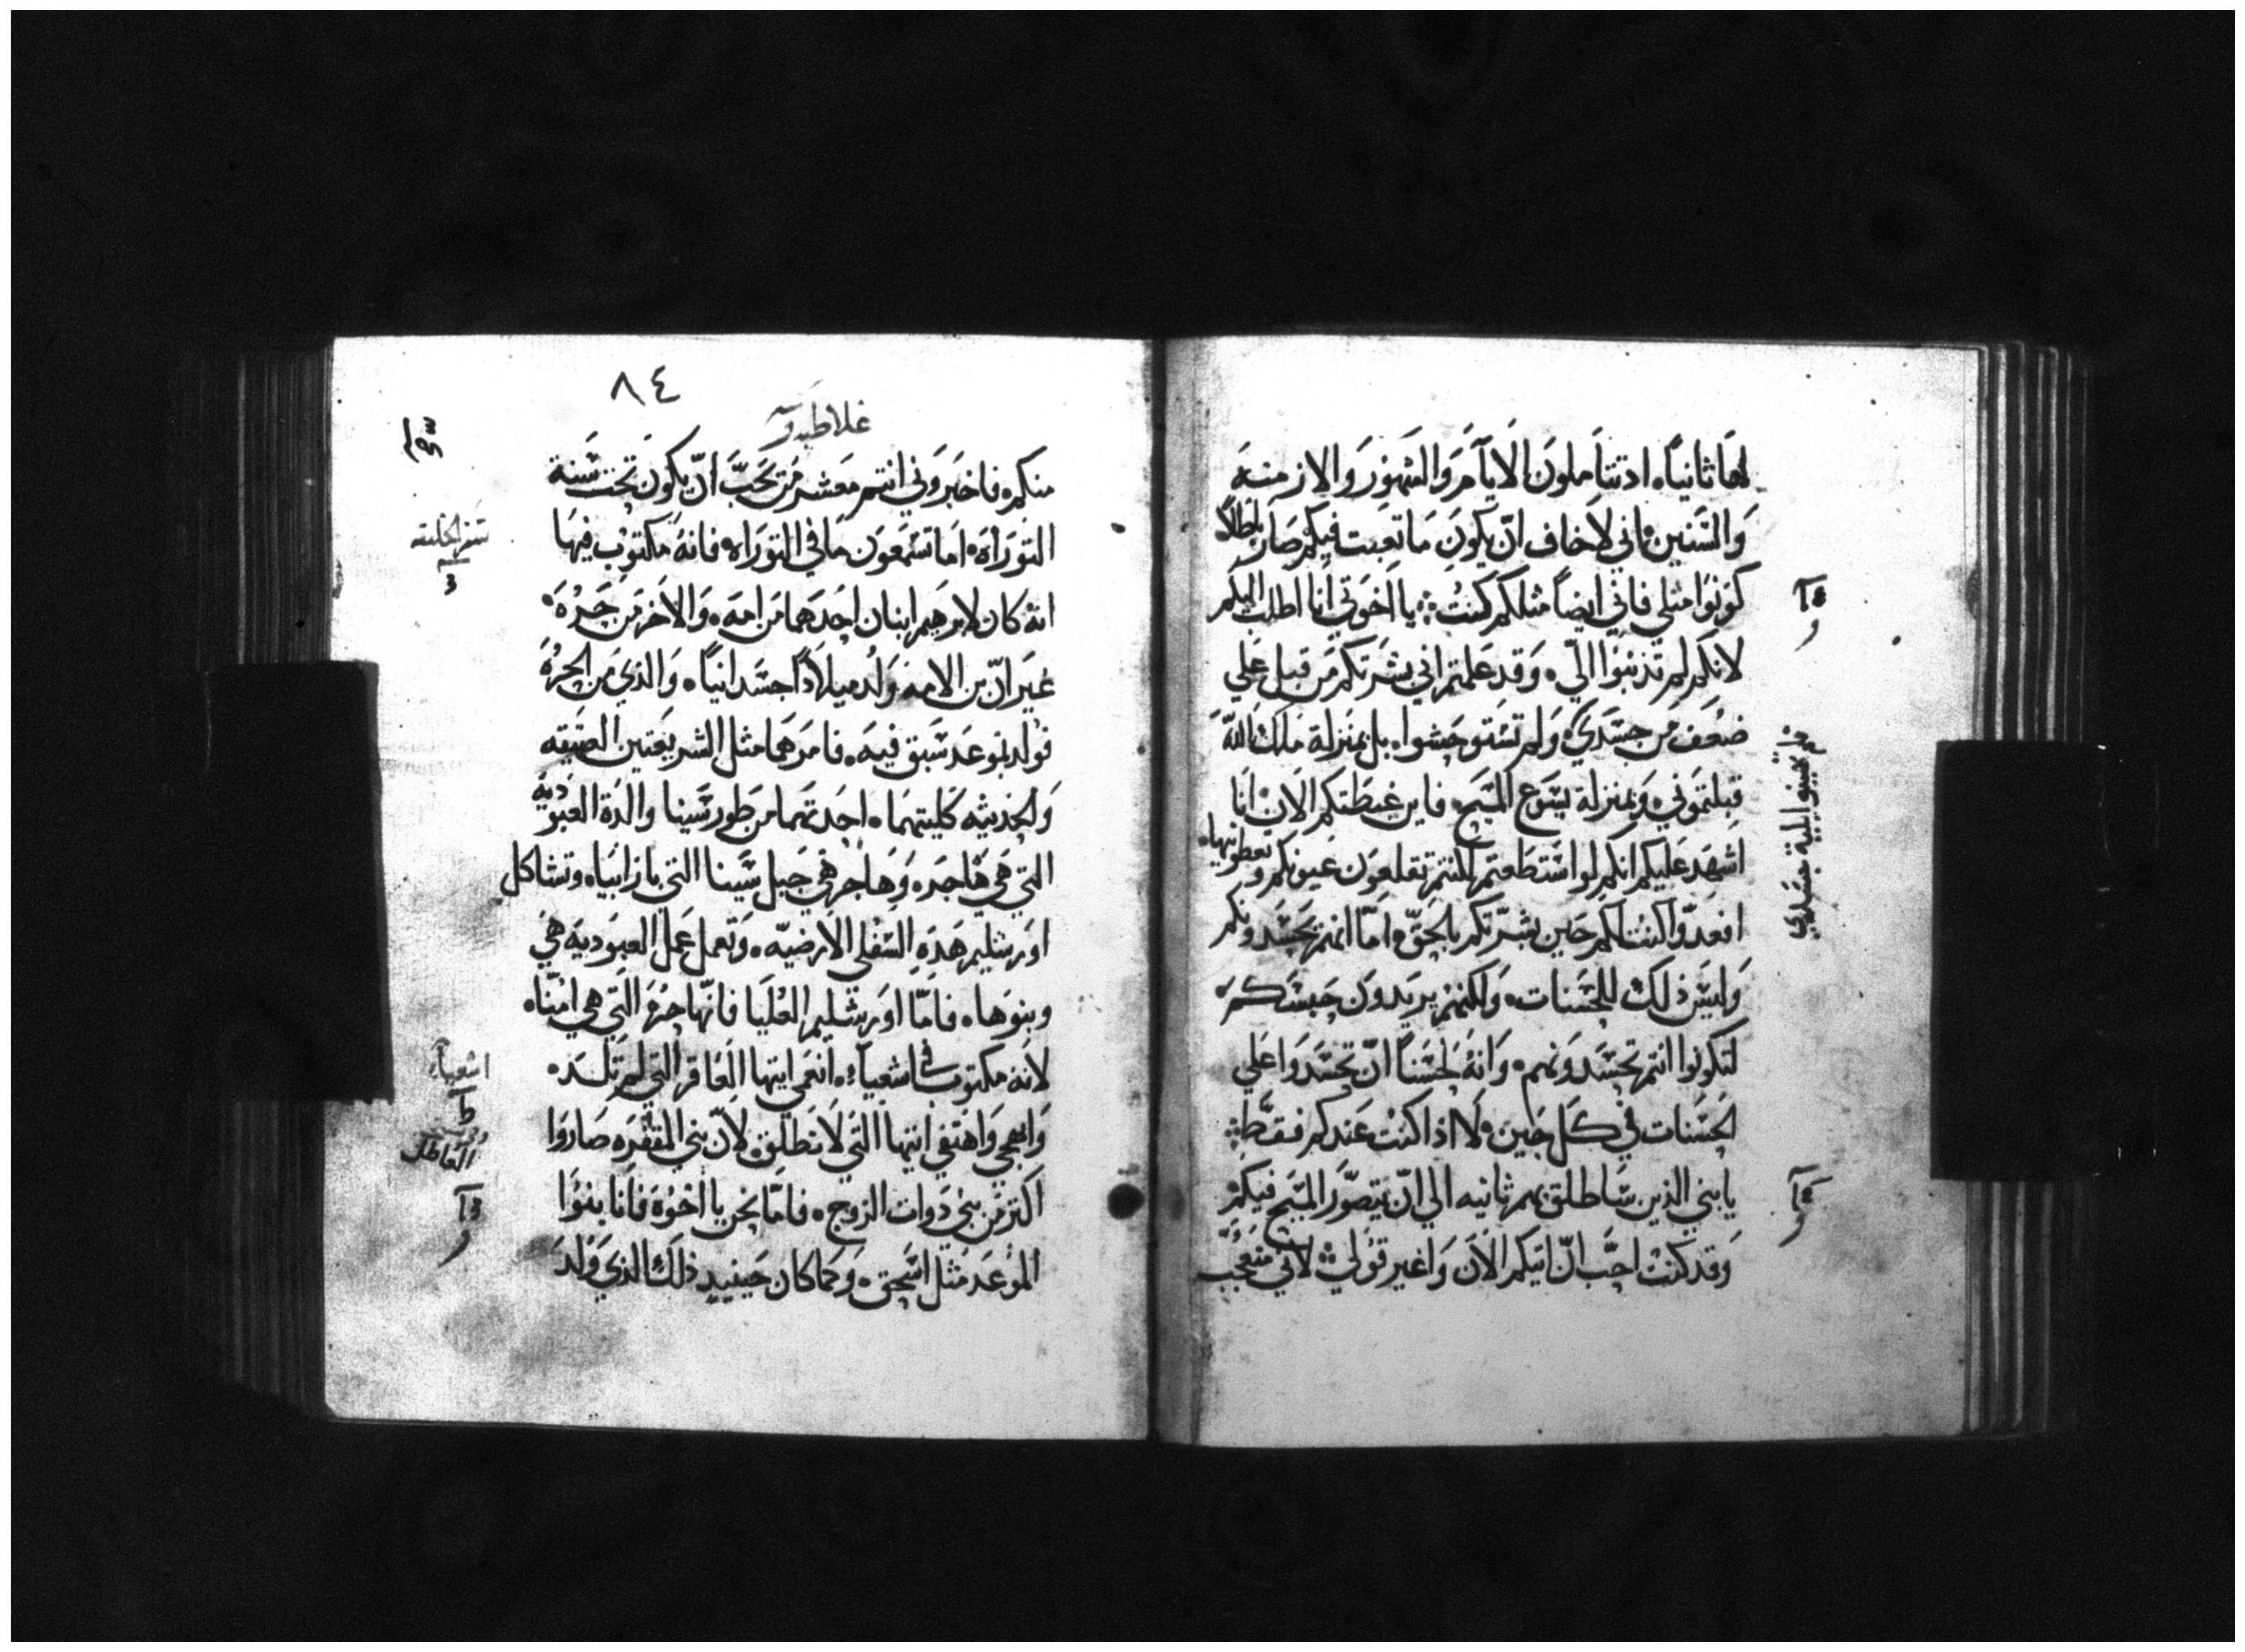 لها ثانياً، ادتتاملون الايام والشهور والازمنه
والسنين، اني لاخاف ان يكون ما تعبت فيكم صار باطلاً
كونوا مثلي فاني ايضاً مثلكم كنت ؞ يا اخوتي انا اطلب اليكم
لانكم لم تذنبوا اليّ، وقد علمتم اني بشرتكم من قبل علي
ضعف من جسدي، ولم تستوحشوا، بل بمنزلة ملاك الله
قبلتموني، وبمنزلة يسوع المسيح، فاين غبطتكم الان، انا
اشهد عليكم انكم لو استطعتم لكنتم تقلعون عيونكم وتعطونيها،
افعدوّا كنت لكم حين بشرتكم بالحق، امّا انهم يحسدونكم
وليس ذلك للحسنات، ولكنهم يريدون حبسكم
لتكونوا انتم تحسدونهم، وانه لحسناً ان تحسدوا علي
الحسنات في كل حين، لا اذا كنت عندكم فقط ؞
يا بني الذين ساطلق بهم ثانيه الي ان يتصوّر المسيح فيكم
وقد كنت احب ان اتيكم الان واغير قولي، لاني متعجب
لم تحيبوا بلية جسدي
٨٤
غلاطيه
منكم، فاخبروني انتم معشر من يحبّ ان يكون تحت سنة
التوراه، اما تسمعون ما في التوراه، فانه مكتوب فيها
انه كان لابرهيم ابنان احدهما من امه، والاخر من حره،
غير انّ بن الامه ولد ميلاداً جسدانياً، والذي من الحره
فولد بموعد سبق فيه، فامرهما مثل الشريعتين العتيقه
والحديثه كليتهما، احدتهما من طور سينا والدة العبودية
التي هي هاجر، وهاجر هي جبل سينا التي بارابيا، وتشاكل
اورشليم هذه السفلي الارضيّه، وتعمل عمل العبوديه هي
وبنوها، فامّا اورشليم العليا فانّها حره التي هي امّنا،
لانه مكتوب في اشعياء، انعمي ايتها العاقر التي لم تلد،
وابهجي واهتفي ايتها التي لا تطلق، لانّ بني المقفره صاروا
اكتر من بني دوات الزوج، فامّا نحن يا اخوه فانا بنوا
الموعد مثل اسحق، وكما كان حينيد ذلك الذي ولد
سفر الخليقه
اشعياء